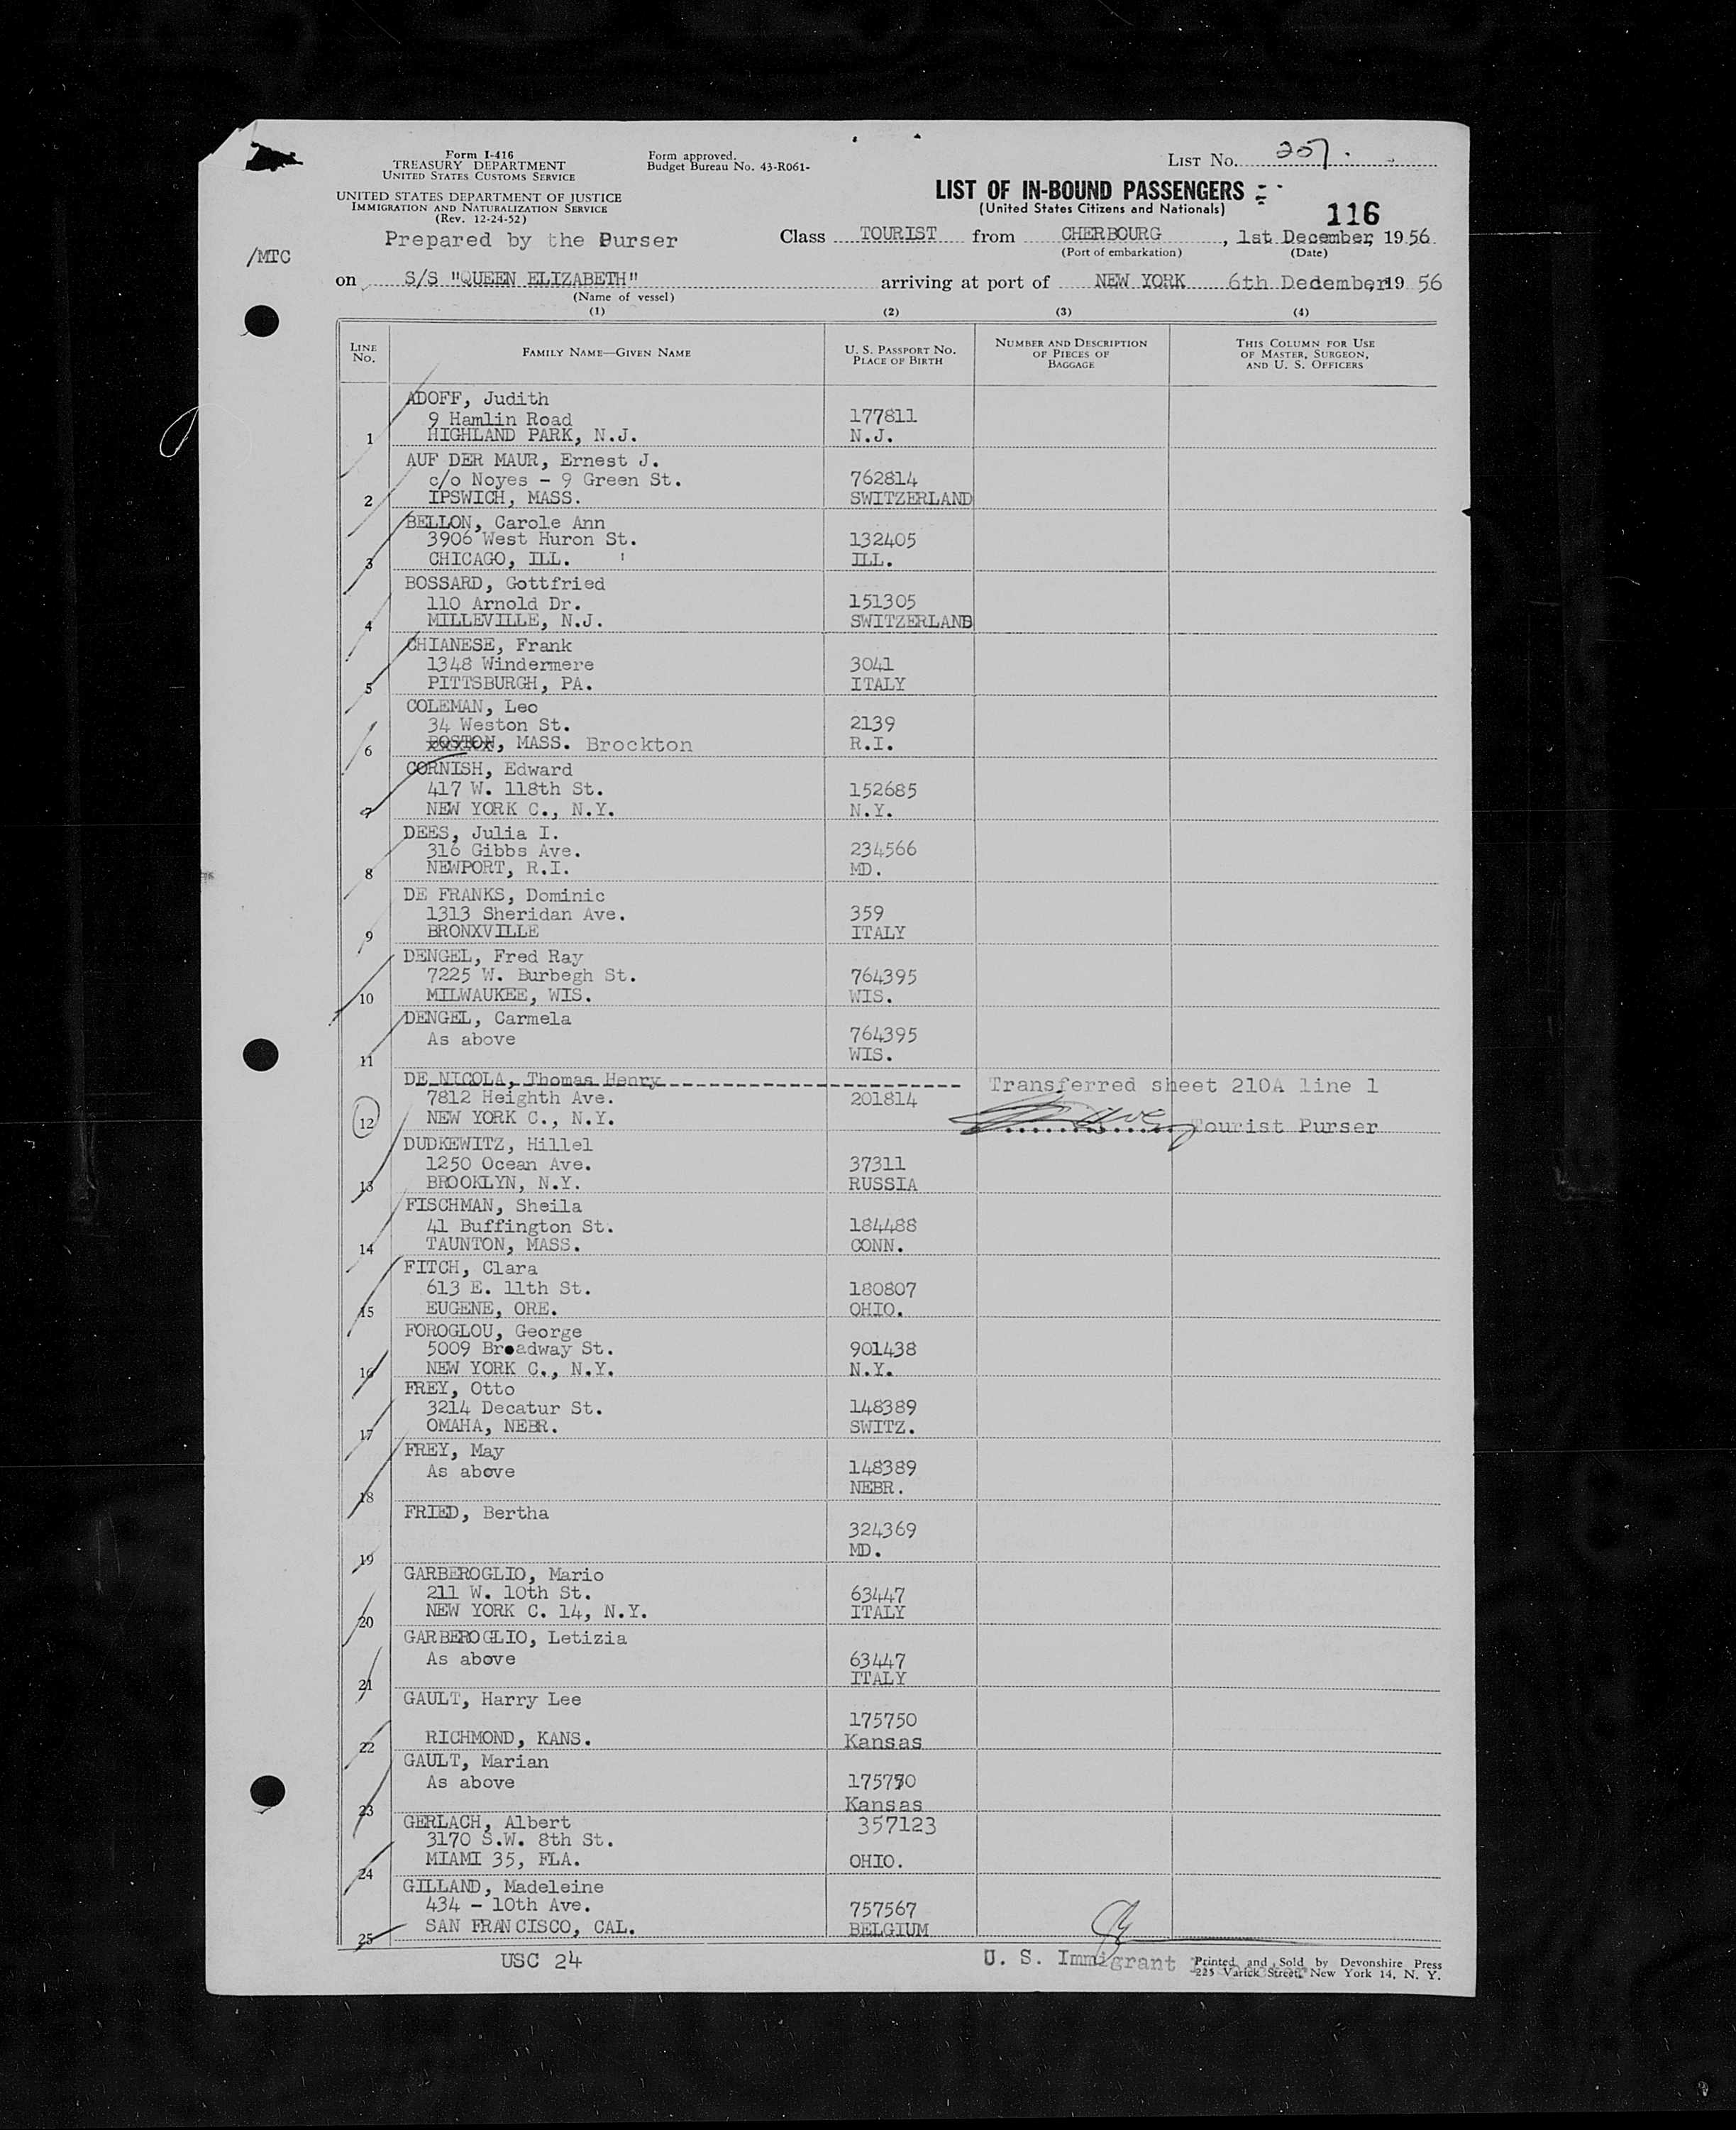 Form I-416
TREASURY DEPARTMENT
UNITED STATES CUSTOMS SERVICE
UNITED STATES DEPARTMENT OF JUSTICE
IMMIGRATION AND NATURALIZATION SERVICE
(Rev. 12-24-52)
Form approved.
Budget Bureau No. 43-R061-
LIST No. 207.
LIST OF IN-BOUND PASSENGERS
(United States Citizens and Nationals)
116
Prepared by the Purser
Class TOURIST from CHERBOURG, 1st December, 1956.
(Port of embarkation) (Date)
/MTC
on S/S "QUEEN ELIZABETH" arriving at port of NEW YORK 6th Dedember, 19 56
(Name of vessel)
(1) (2) (3) (4)
LINE No. FAMILY NAME—GIVEN NAME U. S. PASSPORT NO. PLACE OF BIRTH NUMBER AND DESCRIPTION OF PIECES OF BAGGAGE THIS COLUMN FOR USE OF MASTER, SURGEON, AND U. S. OFFICERS
ADOFF, Judith
9 Hamlin Road 177811
1 HIGHLAND PARK, N.J. N.J.
AUF DER MAUR, Ernest J.
c/o Noyes - 9 Green St. 762814
2 IPSWICH, MASS. SWITZERLAND
BELLON, Carole Ann
3906 West Huron St. 132405
3 CHICAGO, ILL. ILL.
BOSSARD, Gottfried
110 Arnold Dr. 151305
4 MILLEVILLE, N.J. SWITZERLAND
CHIANESE, Frank
1348 Windermere 3041
5 PITTSBURGH, PA. ITALY
COLEMAN, Leo
34 Weston St. 2139
6 BOSTON, MASS. Brockton R.I.
CORNISH, Edward
417 W. 118th St. 152685
7 NEW YORK C., N.Y. N.Y.
DEES, Julia I.
316 Gibbs Ave. 234566
8 NEWPORT, R.I. MD.
DE FRANKS, Dominic
1313 Sheridan Ave. 359
9 BRONXVILLE ITALY
DENGEL, Fred Ray
7225 W. Burbegh St. 764395
10 MILWAUKEE, WIS. WIS.
DENGEL, Carmela
As above 764395
11 WIS.
DE NICOLA, Thomas Henry Transferred sheet 210A line 1
7812 Heighth Ave. 201814
12 NEW YORK C., N.Y. Tourist Purser
DUDKEWITZ, Hillel
1250 Ocean Ave. 37311
13 BROOKLYN, N.Y. RUSSIA
FISCHMAN, Sheila
41 Buffington St. 184488
14 TAUNTON, MASS. CONN.
FITCH, Clara
613 E. 11th St. 180807
15 EUGENE, ORE. OHIO.
FOROGLOU, George
5009 Broadway St. 901438
16 NEW YORK C., N.Y. N.Y.
FREY, Otto
3214 Decatur St. 148389
17 OMAHA, NEBR. SWITZ.
FREY, May
As above 148389
18 NEBR.
FRIED, Bertha
324369
19 MD.
GARBEROGLIO, Mario
211 W. 10th St. 63447
20 NEW YORK C. 14, N.Y. ITALY
GARBEROGLIO, Letizia
As above 63447
21 ITALY
GAULT, Harry Lee
175750
22 RICHMOND, KANS. Kansas
GAULT, Marian
As above 175750
23 Kansas
GERLACH, Albert 357123
3170 S.W. 8th St.
24 MIAMI 35, FLA. OHIO.
GILLAND, Madeleine
434 - 10th Ave. 757567
25 SAN FRANCISCO, CAL. BELGIUM
USC 24
U. S. Immigrant
Printed and Sold by Devonshire Press
225 Varick Street, New York 14, N. Y.